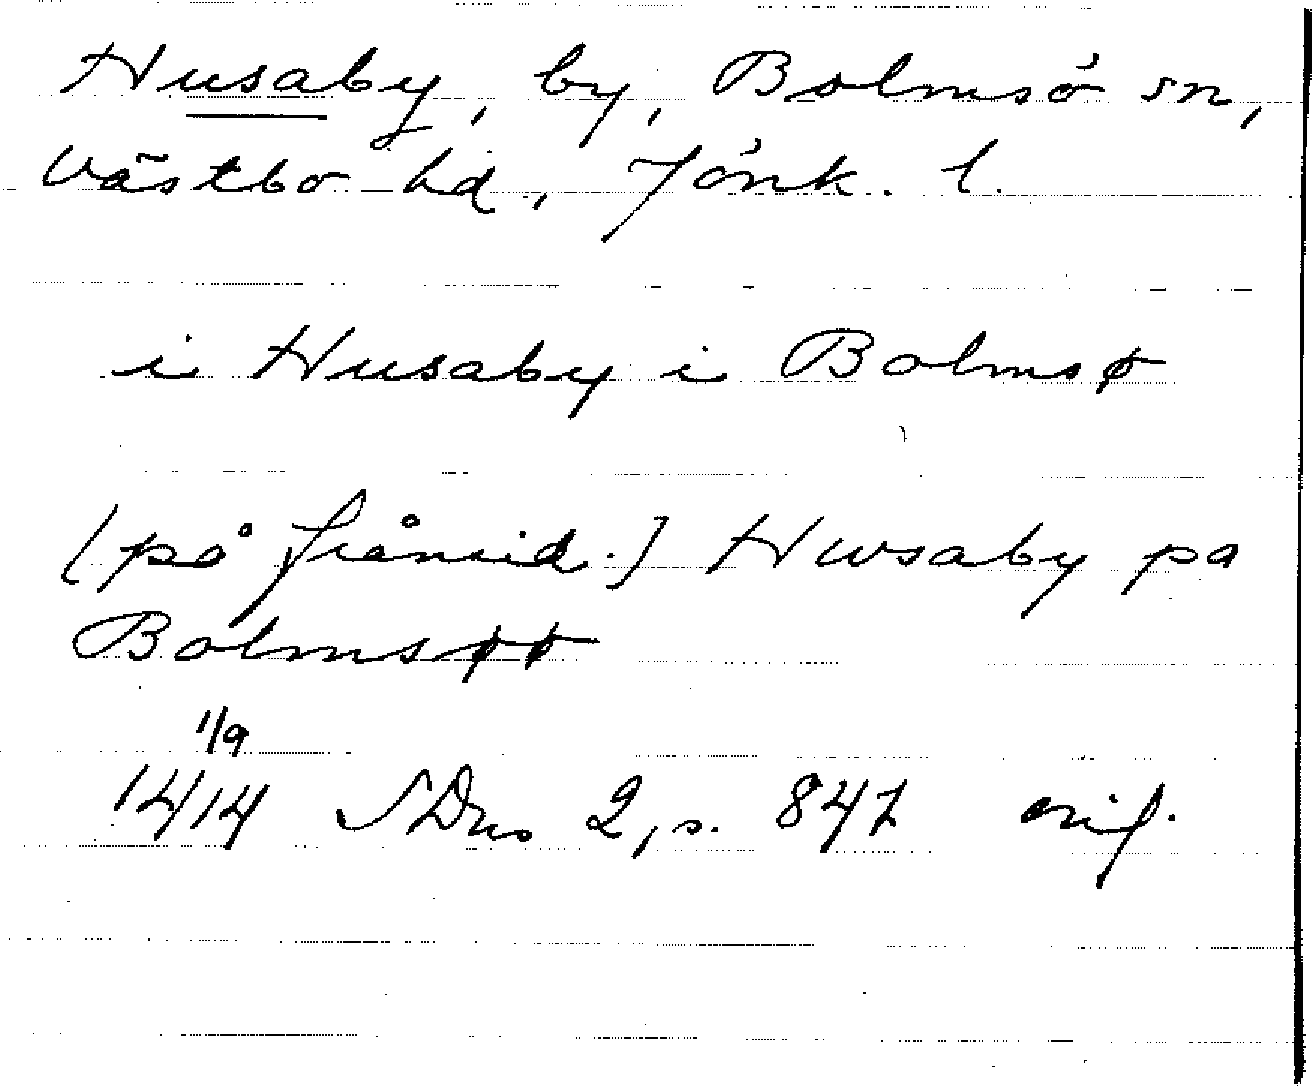 Husaby, by, Bolmsö sn,
Västbo hd, Jönk. l.
i Husaby i Bolmsø
[på frånsid.] Hwsaby pa
Bolmsøø
1/9
1414 SDns 2, s. 847 orig.